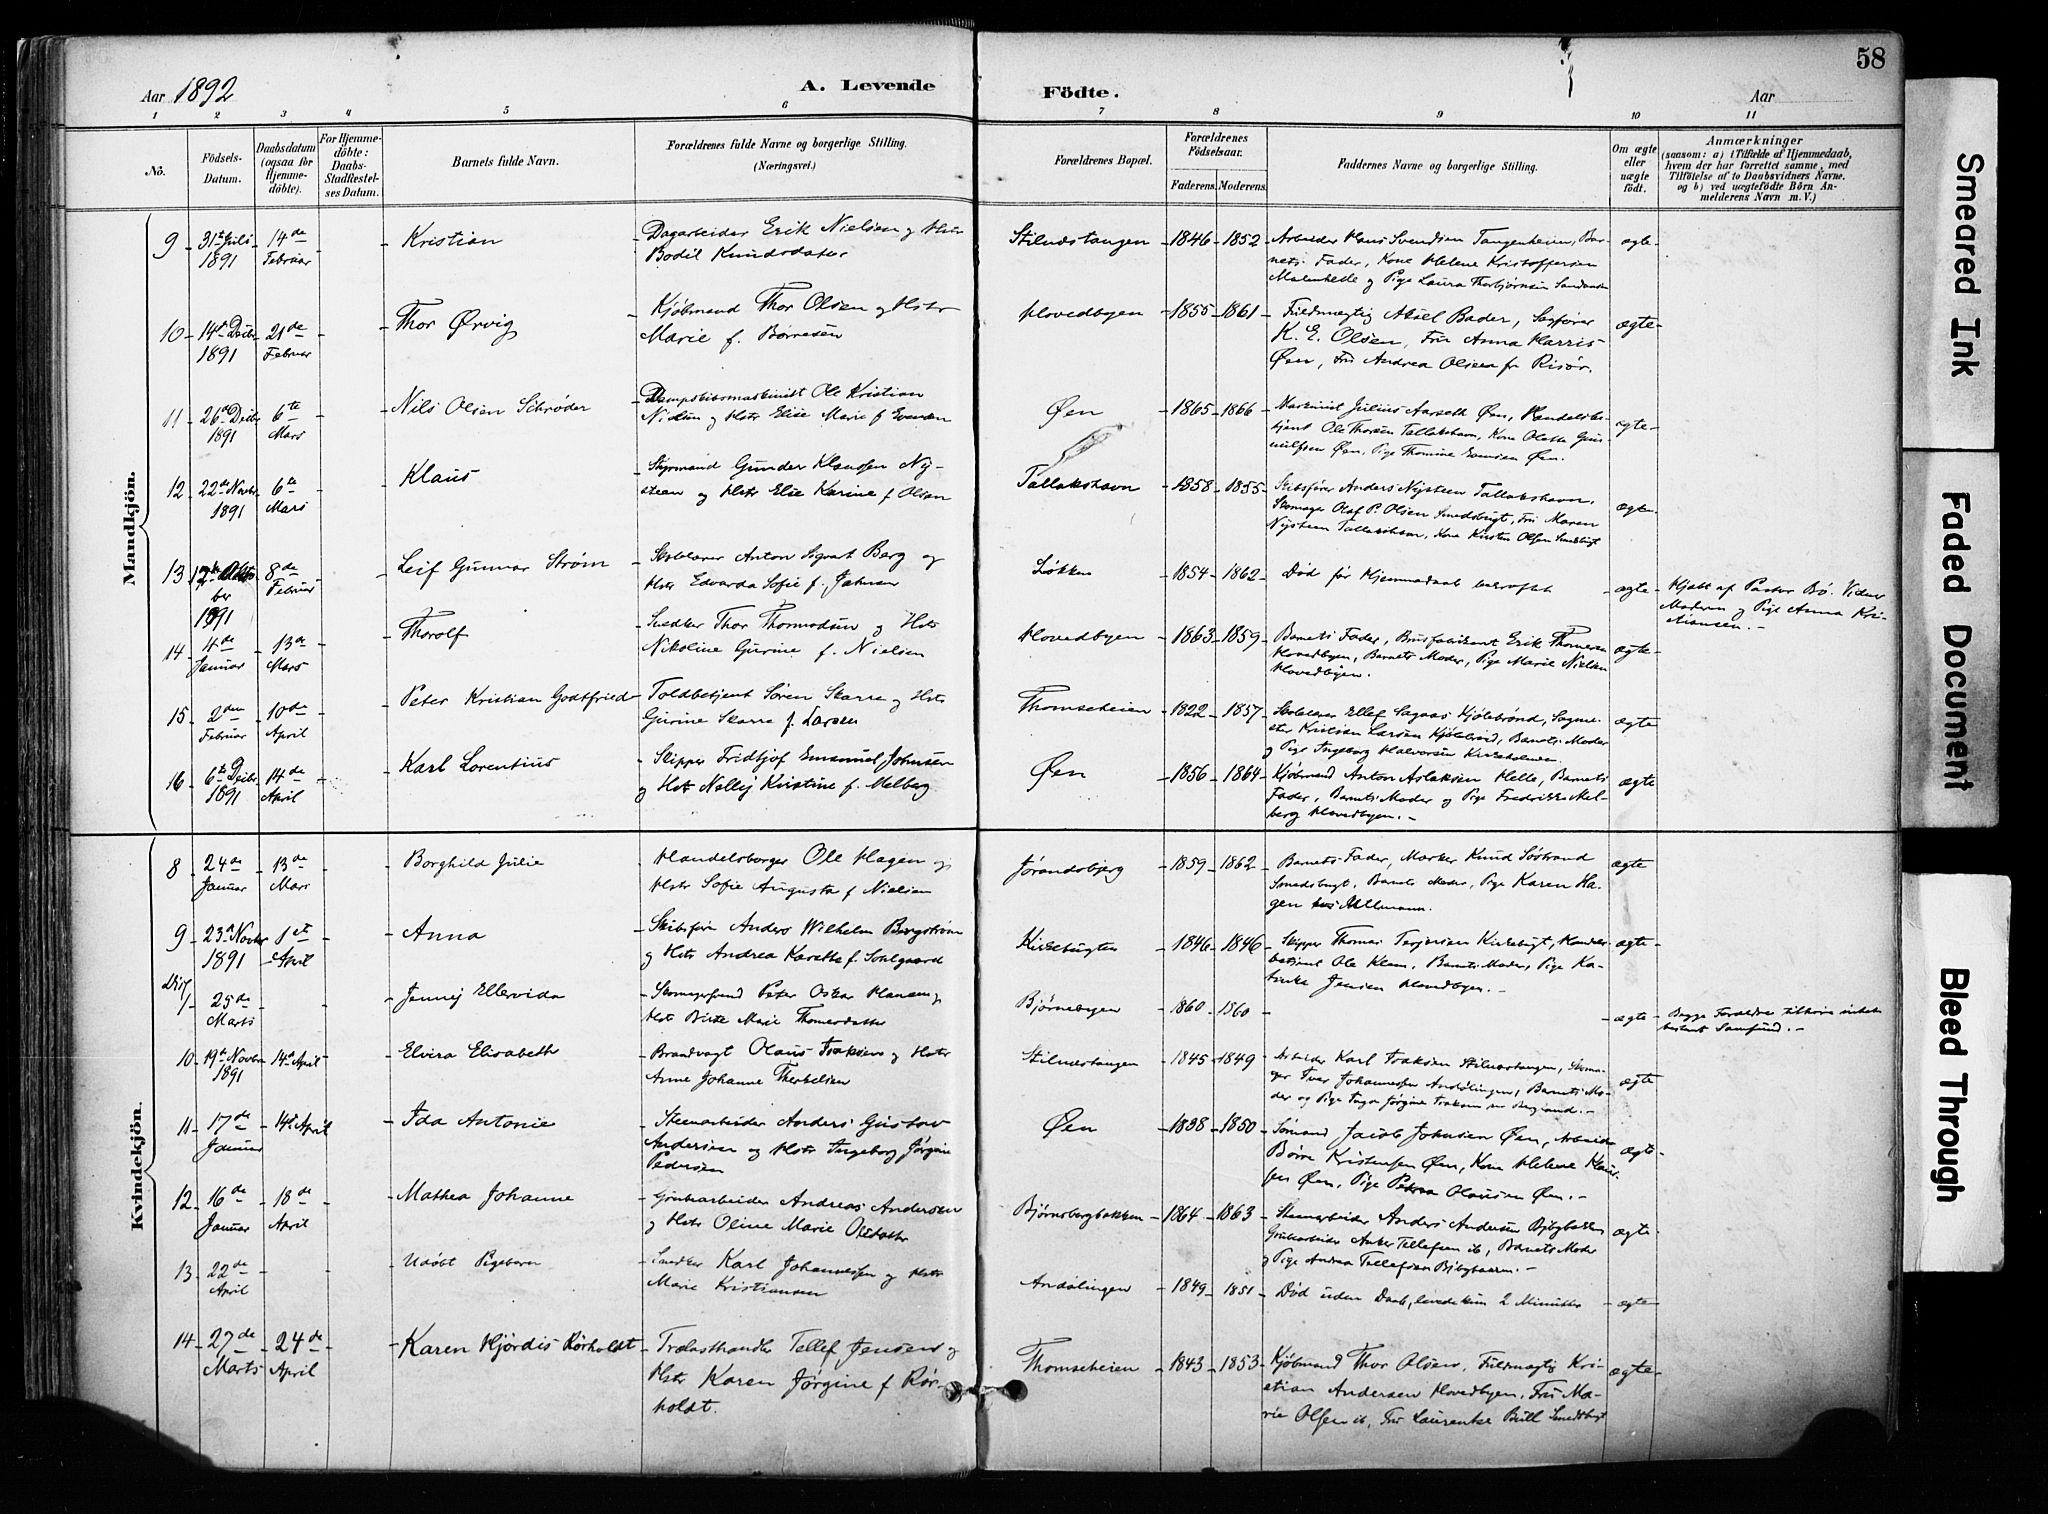 58
Aar 1892
A. Levende
Födte.
Aar
1 2 3 4 5 6 7 8 9 10 11
No.
Födsels-Datum.
Daabsdatum (ogsaa för Hjemmedöbte).
For Hjemmedöbte: Daabs-Stadfestelses Datum.
Barnets fulde Navn.
Forældrenes fulde Navne og borgerlige Stilling. (Næringsvei.)
Forældrenes Bopæl.
Forældrenes Födselsaar.
Faderens. Moderens.
Faddernes Navne og borgerlige Stilling.
Om ægte eller uægte födt.
Anmærkninger
(saasom: a) i Tilfælde af Hjemmedaab, hvem der har forrettet samme, med Tilföielse af to Daabsvidners Navne, og b) ved uægtefödte Börn Anmelderens Navn m. V.)
Mandkjön.
9 31te Juli 1891 14de Februar Kristian
Dagarbeider Erik Nielsen og Hstr
Bodil Knudsdatter
Stilnæstangen 1846 1852
Arbeider Hans Svendsen Tangenheien, Barnets Fader, Kone Helene Kristoffersen
og Pige Laura Thorbjørnsen
ægte
10 14de Decbr 1891 21de Februar Thor Ørvig
Kjøbmand Thor Olsen og Hstr
Marie f. Børresen
Hovedbyen 1855 1861
Fuldmægtig Aksel Bader, Sagfører
K. E. Olsen, Fru Anna Harris
Øen, Fru Andrea Olsen fr Risør.
ægte
11 26de Decbr 1891 6te Mars Nils Olsen Schrøder
Dampskibsmaskinist Ole Kristian
Nielsen og Hstr Elise Marie f Evensen
Øen 1865 1866
Maskinist Julius Aarseth Øen, Handelsbetjent Ole Thorsen Tallakshavn, Kone Olette Gunnulfsen Øen, Pige Thomine Evensen Øen.
ægte
12 22de Novbr 1891 6te Mars Klaus
Styrmand Gunder Klausen Nysteen og Hstr Elise Karine f. Olsen
Tallakshavn 1858 1855
Skibsfører Anders Nysteen Tallakshavn,
Skomager Olaf P. Olsen Smedsbugt, Fru Maren
Nysteen Tallakshavn, Kone Kirsten Olsen Smedsbugt
ægte
13 1891 8de Februar Leif Gunnar Strøm
Skolelærer Anton Sigvart Berg og
Hstr Edvarda Sofie f. Jahnsen
Løkken 1854 1862
Død før Hjemmedaab bekræftet
ægte
Hjdøbt af Pastor Bø. Vidner
Moderen og Pige Anna Kristiansen.
14 4de Januar 13de Mars Thorolf
Snedker Thor Thormodsen og Hstr
Nikoline Gurine f. Nielsen
Hovedbyen 1863 1859
Barnets Fader, Brusfabrikant Erik Thomesen
Hovedbyen, Barnets Moder, Pige Marie Nielsen
Hovedbyen.
ægte
15 2den Februar 10de April Peter Kristian Godtfried
Toldbetjent Søren Skarre og Hstr
Gurine Skarre f. Larsen
Thomseheien 1822 1857
Skolelærer Ellef Sagaas Kjølebrønd, Kristian Larsen Kjølebrønd, Barnets Moder
og Pige Ingeborg Halvorsen Kirkeholmen
ægte
16 6te Decbr 1891 14de April Karl Lorentius
Skipper Fridtjof Emanuel Johnsen
og Hstr Nelly Kristine f. Melberg
Øen 1856 1864
Kjøbmand Anton Aslaksen Helle, Barnets
Fader, Barnets Moder og Pige Fredrikke Melberg Hovedbyen.
ægte
Kvindekjön.
8 24de Januar 13de Mars Borghild Julie
Handelsborger Ole Hagen og
Hstr Sofie Augusta f Nielsen
Jørandsbjerg 1859 1862
Barnets Fader, Knud Søstrand
Smedsbugt, Barnets Moder, Pige Karen Hagen
ægte
9 23de Novbr 1891 1ste April Anna
Skibsfører Anders Wilhelm Bergstrøm
og Hstr Andrea Karette f.
Kirkebugten 1846 1846
Skipper Thomas Terjesen Kirkebugt, Handelsbetjent Ole Klem, Barnets Moder, Pige Katinka Jensen Hovedbyen.
ægte
Diss
1 25de Marts Jenny Ellervida
Skomagersvend Peter Oskar Hansen og
Hstr Birte Marie Thomesdatter
Bjørnebyen 1860 1860
ægte
Begge Forældre tilhører intet
bestemt Samfund.
10 19de Novbr 1891 14de April Elvira Elisabeth
Brandvagt Olaus Isaksen og Hstr
Anne Johanne Therkelsen
Stilnæstangen 1845 1849
Arbeider Karl Isaksen Stilnæstangen, Skomager Ivar Johannessen Andølingen, Barnets Moder og Pige Inga Jørgine Isaksen
ægte
11 17de Januar 14de April Ida Antonie
Steenarbeider Anders Gustav
Andersen og Hstr Ingeborg Jørgine
Pedersen
Øen 1838 1850
Sømand Jacob Johnsen Øen, Arbeider
Børre Kristensen Øen, Kone Helene Klausen Øen, Pige Petrea Olausen Øen.
ægte
12 16de Januar 18de April Mathea Johanne
Grubearbeider Andreas Andersen
og Hstr Oline Marie Olsdatter
Bjørnsbergbakken 1864 1863
Steenarbeider Anders Andersen
Grubearbeider Anker Tellefsen ib, Barnets Moder
og Pige Andrea Tellefsen
ægte
13 22de April Udøbt Pigebarn
Snedker Karl Johannessen og Hstr
Marie Kristiansen
Andølingen 1849 1851
Død uden Daab, levede kun 2 Minutter
ægte
14 27de Marts 24de April Karen Hjørdis Rørholdt
Trælasthandler Tellef Jensen og
Hstr Karen Jørgine f Rørholdt.
Thomseheien 1843 1853
Kjøbmand Thor Olsen, Fuldmægtig Kristian Andersen Hovedbyen, Fru Marie Olsen ib, Fru Laurentse Bull Smedsbugt
ægte
Smeared Ink
Faded Document
Bleed Through